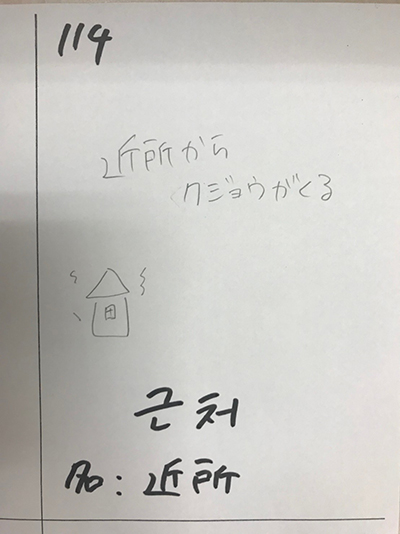 114
近所から
クジョウがくる
근처
名: 近所